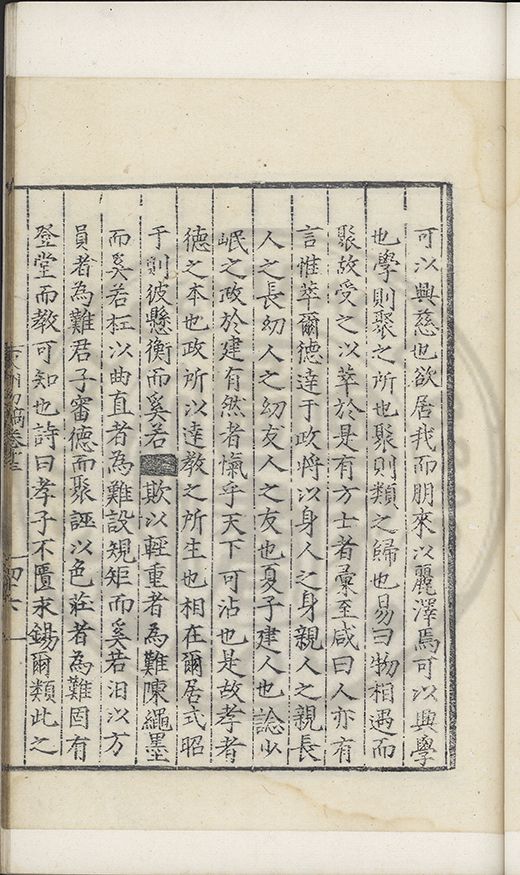 可以興慈也欲居我而朋來以麗澤焉可以興學
也學則聚之所也聚則類之歸也易曰物相遇而
聚故受之以萃於是有方士者彙至咸曰人亦有
言惟萃爾德達于政將以身人之身親人之親長
人之長幼人之幼友人之友也夏子建人也諗少
岷之政於建有然者愾乎天下可沾也是故孝者
德之本也政所以達教之所生也相在爾居式昭
于則彼懸衡而奚若欺以輕重者為難陳繩墨
而奚若枉以曲直者為難設規矩而奚若汨以方
員者為難君子審德而聚誣以色莊者為難固有
登堂而教可知也詩曰孝子不匱永錫爾類此之